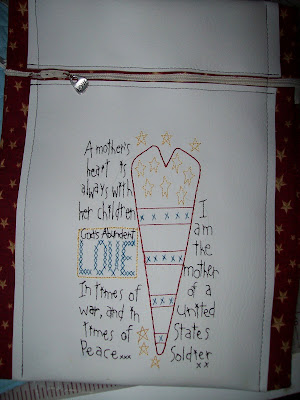 A mother's
heart is
always with
her children
God's Abundent
LOVE
In times of
war, and in
times of
Peace...
I
am
the
mother
of a
United
States
Soldier..